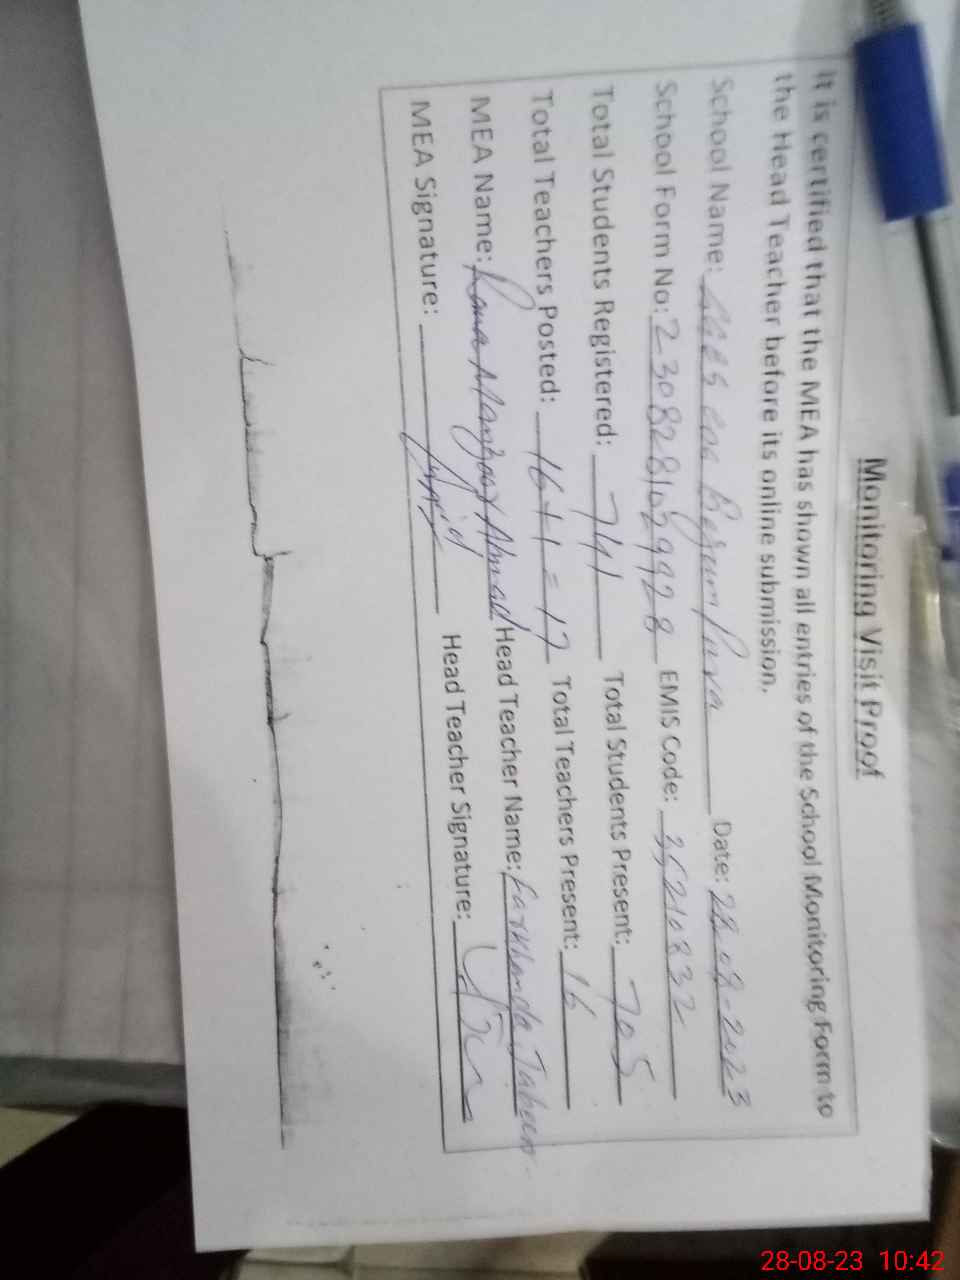 Monitoring Visit Proof
It is certified that the MEA has shown all entries of the School Monitoring Form to
the Head Teacher before its online submission.
School Name: Begum Date: 28-08-2023
School Form No: 2308281029928 EMIS Code: 35210832
Total Students Registered: 741 Total Students Present: 705
Total Teachers Posted: 16+1=17 Total Teachers Present: 16
MEA Name: Rana Manzoor Ahmad Head Teacher Name: Farkhanda Jabeen
MEA Signature: Head Teacher Signature:
28-08-23 10:42